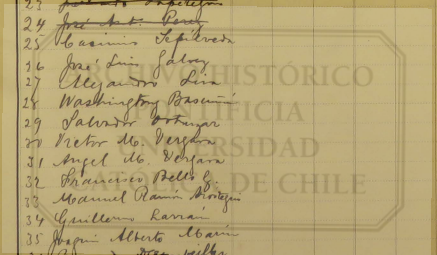 23
24 José Ant. Perez
25 Casimiro Sepúlveda
26 José Luis Galvez
27 Alejandro Lira
28 Washington Bascuñán
29 Salvador
30 Victor M. Vergara
31 Angel M. Vergara
32 Francisco Bello G.
33 Manuel Ramon
34 Guillermo Larraín
35 Joaquin Alberto Marin
ARCHIVO HISTÓRICO
PONTIFICIA
UNIVERSIDAD
CATÓLICA DE CHILE